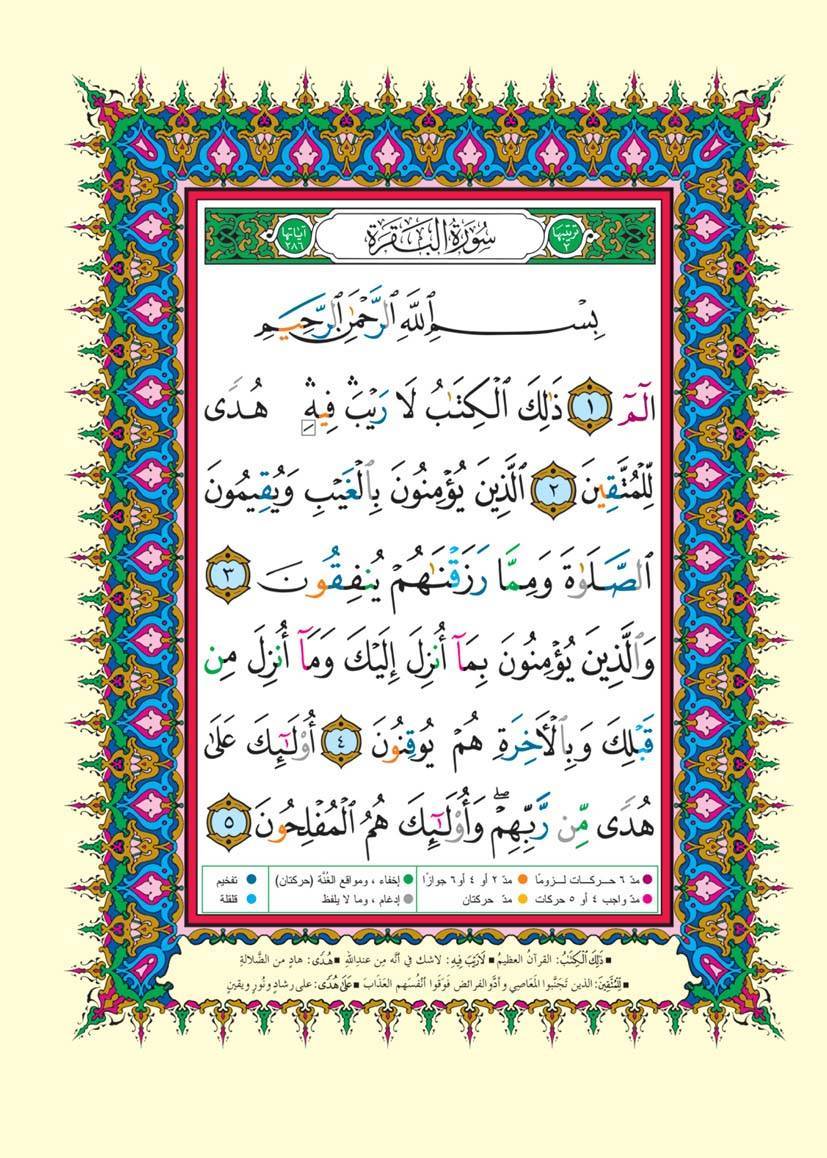 ترتيبها ٢ سُورَةُ البَقَرَةِ آياتها ٢٨٦
بِسْمِ ٱللَّهِ ٱلرَّحْمَٰنِ ٱلرَّحِيمِ
الٓمٓ ١ ذَٰلِكَ ٱلْكِتَٰبُ لَا رَيْبَ ۛ فِيهِ ۛ هُدًى
لِّلْمُتَّقِينَ ٢ ٱلَّذِينَ يُؤْمِنُونَ بِٱلْغَيْبِ وَيُقِيمُونَ
ٱلصَّلَوٰةَ وَمِمَّا رَزَقْنَٰهُمْ يُنفِقُونَ ٣
وَٱلَّذِينَ يُؤْمِنُونَ بِمَآ أُنزِلَ إِلَيْكَ وَمَآ أُنزِلَ مِن
قَبْلِكَ وَبِٱلْأَخِرَةِ هُمْ يُوقِنُونَ ٤ أُوْلَٰٓئِكَ عَلَىٰ
هُدًى مِّن رَّبِّهِمْ ۖ وَأُوْلَٰٓئِكَ هُمُ ٱلْمُفْلِحُونَ ٥
مدّ ٦ حـركـات لـزومًا مدّ ٢ أو ٤ أو ٦ جوازًا إخفاء ، ومواقع الغُنَّة (حركتان) تفخيم
مدّ واجب ٤ أو ٥ حركات مدّ حركتان إدغام ، وما لا يلفظ قلقلة
ذَٰلِكَ ٱلْكِتَٰبُ: القرآنُ العظيمُ لَا رَيْبَ فِيهِ: لاشك في أنَّه مِن عندِاللهِ هُدًى: هادٍ من الضَّلالةِ
لِّلْمُتَّقِينَ: الذين تَجَنَّبوا المَعَاصي وأدَّوالفرائض فَوَقَوا أنْفُسَهم العَذَابَ عَلَىٰ هُدًى: على رشادٍ ونُورٍ ويقينٍ